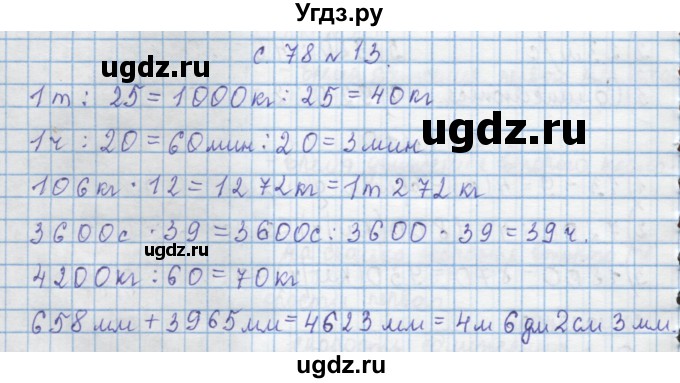 Угдз.ру
с. 78 № 13.
ugdz.ru
1т : 25 = 1000кг : 25 = 40кг
ugdz.ru
1ч : 20 = 60мин : 20 = 3мин
106кг · 12 = 1272кг = 1т 272кг
3600с · 39 = 3600с : 3600 · 39 = 39ч.
ugdz.ru
4200кг : 60 = 70кг
658мм + 3965мм = 4623мм = 4м 6дм 2см 3мм.
ugdz.ru